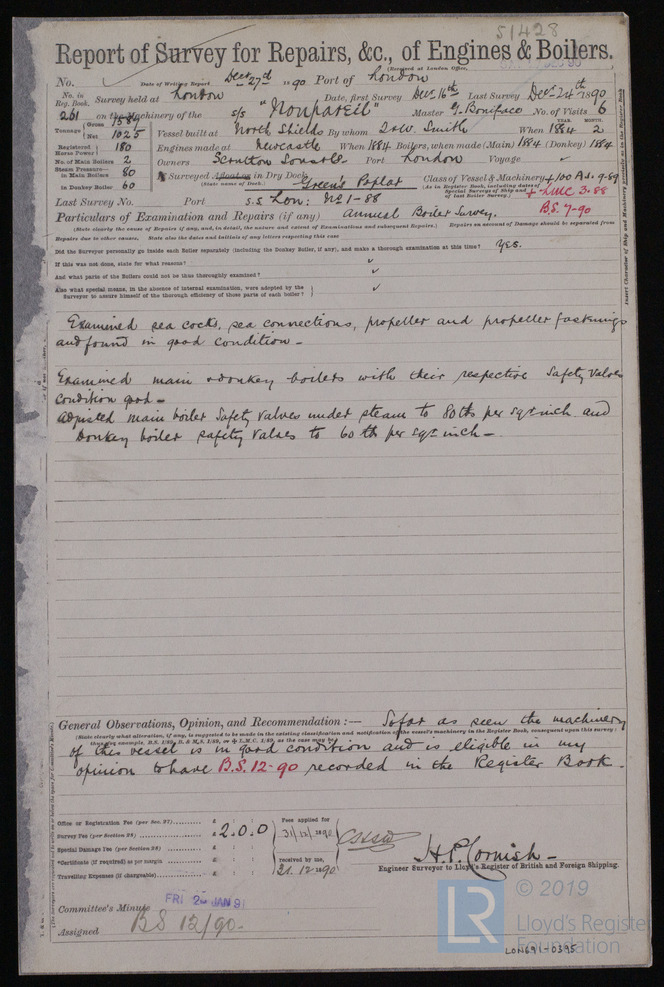 51428
Report of Survey for Repairs, &c., of Engines & Boilers.
(Received at London Office,
No. Date of Writing Report Decr 27th 1890 Port of London
No. in Reg. Book. Survey held at London Date, first Survey Decr 16th Last Survey Decr 24th 1890
261 on the Machinery of the s/s "Nonpareil" Master G. Boniface No. of Visits 6
Tonnage Gross 1589
Net 1025 Vessel built at North Shields By whom T & W. Smith When 1884 YEAR. MONTH. 2
Registered Horse Power 180 Engines made at Newcastle When 1884 Boilers, when made (Main) 1884 (Donkey) 1884
No. of Main Boilers 2 Owners Scrutton Sons & Co Port London Voyage
Steam Pressure—in Main Boilers 80 If Surveyed Afloat or in Dry Dock Green's Poplar Class of Vessel & Machinery +100 A1. 9-89
(State name of Dock.) (As in Register Book, including dates of Special Surveys of Ship and of last Boiler Survey.) + LMC 3.88
in Donkey Boiler 60
B.S. 7-90
Last Survey No. Port S.S. Lon: No 1-88
Particulars of Examination and Repairs (if any) Annual Boiler Survey.
(State clearly the cause of Repairs if any, and, in detail, the nature and extent of Examinations and subsequent Repairs.) Repairs on account of Damage should be separated from
Repairs due to other causes. State also the dates and initials of any letters respecting this case
Did the Surveyor personally go inside each Boiler separately (including the Donkey Boiler, if any), and make a thorough examination at this time? Yes.
If this was not done, state for what reasons?
And what parts of the Boilers could not be thus thoroughly examined?
Also what special means, in the absence of internal examination, were adopted by the
Surveyor to assure himself of the thorough efficiency of those parts of each boiler?
Insert Character of Ship and Machinery precisely as in the Register Book
Examined sea cocks, sea connections, propeller and propeller fastenings
and found in good condition -
Examined main & Donkey boilers with their respective Safety Valves
condition good -
Adjusted main boiler Safety Valves under steam to 80 lbs per sqre inch and
Donkey boiler safety valves to 60 lbs per sqre inch -
General Observations, Opinion, and Recommendation:— So far as seen the machinery
(State clearly what alteration, if any, is suggested to be made in the existing classification and notification of the vessel's machinery in the Register Book, consequent upon this survey:
of this vessel is in good condition and is eligible in my
opinion to have B.S. 12-90 recorded in the Register Book.
Office or Registration Fee (per Sec. 27) £ Fees applied for
Survey Fee (per Section 28) £ 2.0.0 31/12/1890
Special Damage Fee (per Section 28) £
*Certificate (if required) as per margin £ received by me,
Travelling Expenses (if chargeable) £ 31.12.1890
H. P. Cornish -
Engineer Surveyor to Lloyd's Register of British and Foreign Shipping.
Committee's Minute FRI 2 JAN 91
Assigned BS 12/90.
LR
© 2019
Lloyd's Register
Foundation
LON691-0395